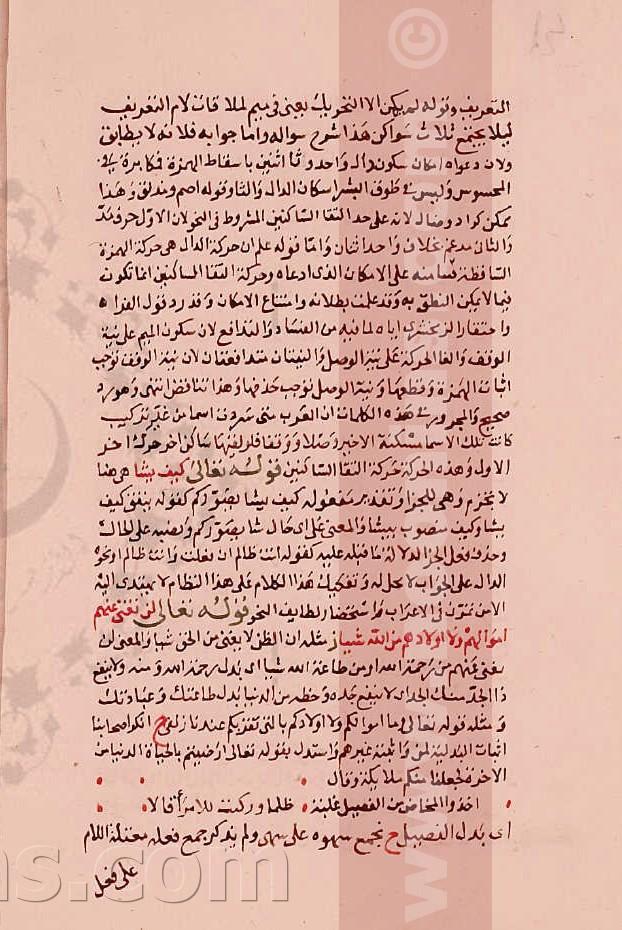 التعريف وقوله لم يكن الا التحريك يعني في ميم لملاقات لام التعريف
ليلا يجتمع ثلاث سواكن هذا شرح سواله واما جوابه فلانه لا يطابق
ولان دعواه امكان سكون دال واحد وثا اثنين باسقاط الهمزة مكابرة في
المحسوس وليس في طوق البشر اسكان الدال والثا وقوله اصم ومديق وهذا
ممكن كراد وضال لانه على حد التقا الساكنين المشروط في النحو لان الاول حرف مد
والثاني مدغم بخلاف واحد اثنان واما قوله علم ان حركة الدال هي حركة الهمزة
الساقطة فبنا منه على الامكان الذي ادعاه وحركة التقا الساكنين انما تكون
فيما لا يمكن النطق به وقد علمت بطلانه وامتناع الامكان وقد رد قول الفراء
واختار الزمخشري اياه لما فيه من الفساد والتدافع لان سكون الميم على نية
الوقف والقا الحركة على نية الوصل والنيتان متدافعتان لان نية الوقف توجب
اثبات الهمزة وقطعها ونية الوصل توجب حذفها وهذا تناقض انتهى وهو رد
صحيح والمحرر في هذه الكلمات ان العرب متى سردت اسما من غير تركيب
كانت تلك الاسما مسكنة الاخير وصلا ووقفا فلو لقيها ساكن اخر حرك اخر
الاول وهذه الحركة حركة التقا الساكنين قوله تعالى كيف يشا هي هنا
لا تجزم وهي للجزا وتقدير مفعوله كيف يشا يصوركم كقوله ينفق كيف
يشا وكيف منصوب بيشا والمعنى على اي حال شا يصوركم ونصبه على الحال
وحذف فعل الجزا لدلالة ما قبله عليه كقوله انت ظالم ان فعلت وانت ظالم او نحو
الدال على الجواب لا محل له وتفكيك هذا الكلام على هذا النظام لا يهتدي اليه
الا من تمرن في الاعراب واستحضار لطايف النحو قوله تعالى لن تغني عنهم
اموالهم ولا اولادهم من الله شيا ز مثله ان الظن لا يغني من الحق شيا والمعنى لن
يغني عنهم من رحمة الله او من طاعة الله شيا اي بدل رحمة الله ومنه ولا ينفع
ذا الجد منك الجد اي لا ينفع جده وحظه من الدنيا بدل طاعتك وعبادتك
ومثله قوله تعالى وما اموالكم ولا اولادكم بالتي تقربكم عندنا زلفى ح انكر اصحابنا
اثبات البدلية لمن واثبته غيرهم واستدل بقوله تعالى ارضيتم بالحياة الدنيا من
الاخرة لجعلنا منكم ملايكة وقال
اخذوا المخاض من الفصيل غلبة ظلما ويكتب للامير افالا
اي بدل الفصيل ح نجمع سهوه على سهى ولم يذكر جمع فعله معتلة اللام
على فعل